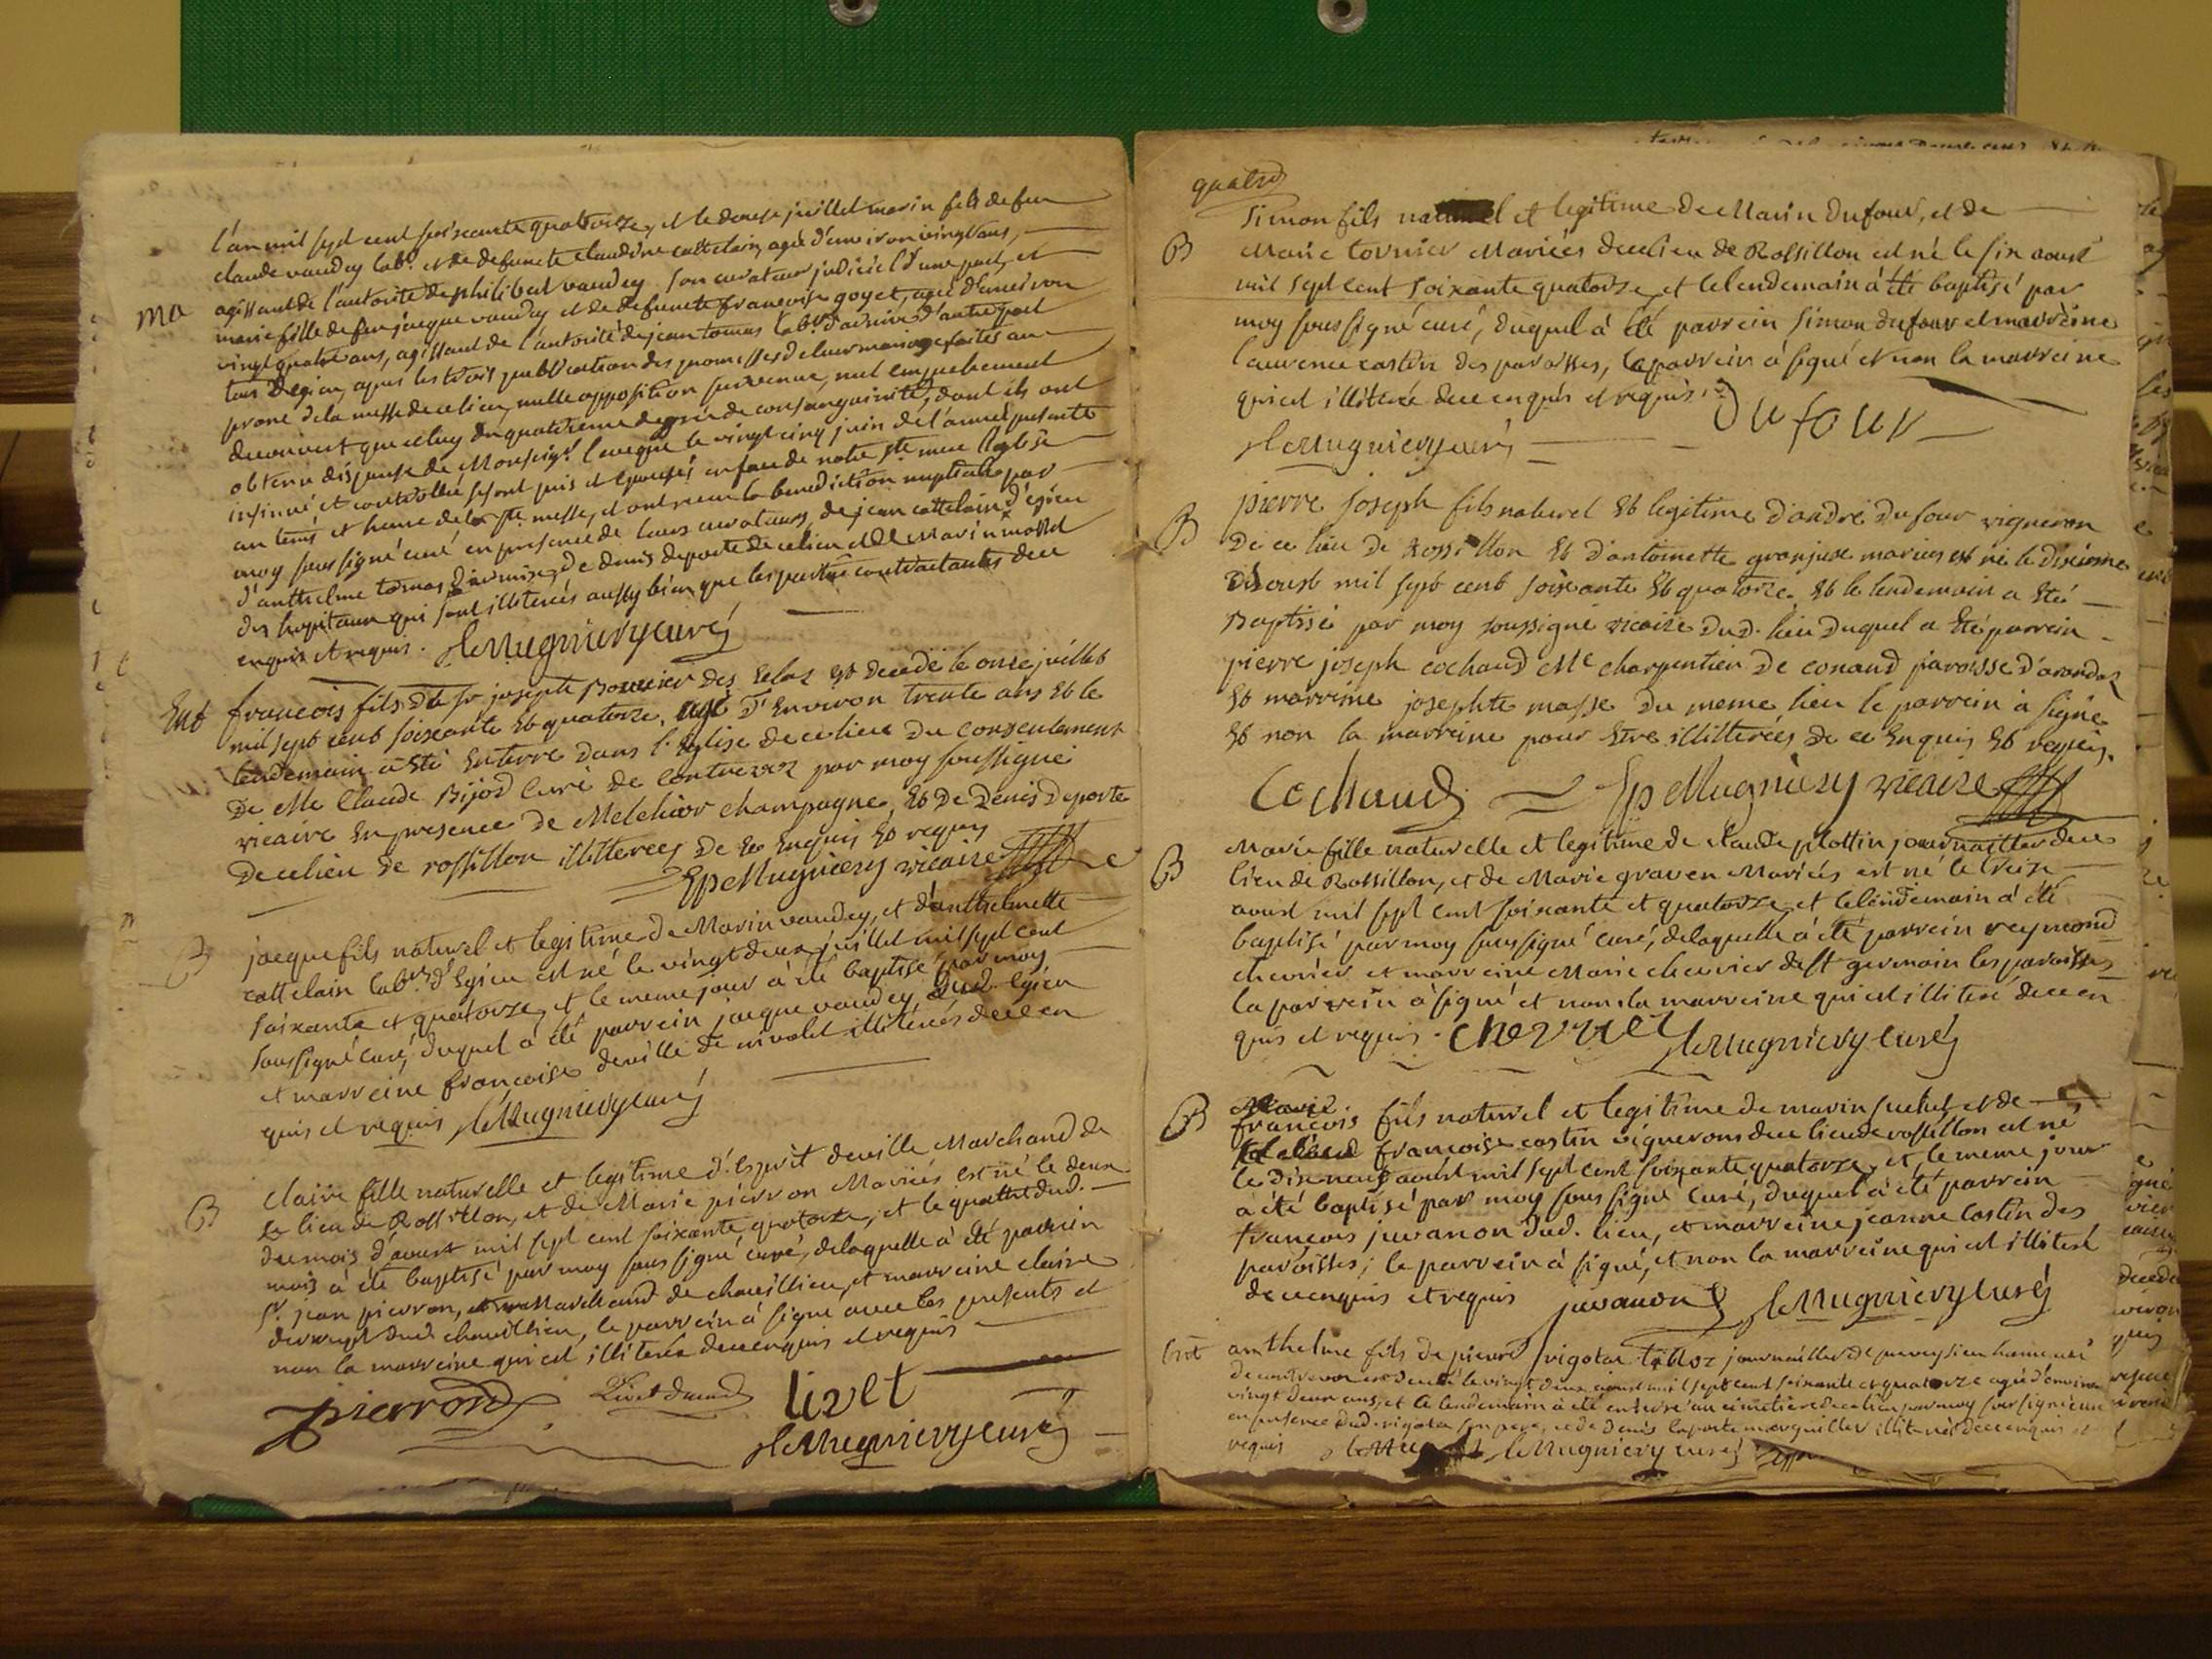 l'an mil sept cent soixante quatorze, et le douze juillet marin fils de feu
claude vaudey labr. et de defuncte claudine cattelain, agé d'environ vingt ans,
ma
agissant de l'autorité de philibert vaudey son curateur judiciel d'une part, et
marie fille de feu jacque vaudey et de defuncte françoise goyet, agée d'environ
vingt quatre ans, agissant de l'autorité de jean tomas labr. d'armix d'autre part
tous d'egieu, apres les trois publications des promesses de leur mariage faites au
prone de la messe de ce lieu, nulle opposition survenue, nul empechement
decouvert que celuy du quatrieme degrée de consanguinité, dont ils ont
obtenu dispense de Monseigr. l'eveque le vingt cinq juin de l'année presente
insinué et controllée se sont pris et epousés en face de notre ste mere l'eglise
au tems et heure de la ste messe, et ont recu la benediction nuptiale par
moy soussigné curé en presence de leurs curateurs, de jean cattelain d'egieu
d'anthelme tomas d'armix, de denis deporte de ce lieu et de Marin massel
des hopitaux qui sont illiterés aussy bien que les parties contractantes de ce
enquis et requis. leMugniery curé
Ent
francois fils de sr joseph des Eclaz est decedé le onze juillet
mil sept cent soixante et quatorze, agé d'environ trente ans et le
lendemain a été enterré dans l'eglise de ce lieu du consentement
de Me Claude Bijod curé de contrevoz par moy soussigné
vicaire en presence de Melchior champagne, et de Denis deporte
de ce lieu de rossillon illiterés de ce enquis et requis
EpeMugniery vicaire
B
jacque fils naturel et legitime de Marin vaudey, et d'anthelmette
cattelain labrs. d'Egieu est né le vingt deux juillet mil sept cent
soixante et quatorze, et le meme jour à été baptisé par moy
soussigné curé, duquel a été parrein jacque vaudey, dud. egieu
et marreine francoise deville de nivolet illiterés de ce en
quis et requis leMugniery curé
B
claire fille naturelle et legitime d'Esprit deville Marchand de
ce lieu de Rossillon, et de Marie pierron Mariés est né le deux
du mois d'aoust mil sept cent soixante quatorze, et le quattre dud.
mois à été baptisé par moy soussigné curé, de laquelle à été parrein
Sr. jean pierron, Marchand de chavillieu, et marreine claire
dud. chavillieu, le parrein à signé avec les presents et
non la marreine qui est illiterée de ce enquis et requis
pierron livet
leMugniery curé
quatre
Simon fils naturel et legitime de Marin Dufour, et de
B
Marie tornier Mariés de ce lieu de Rossillon est né le six aoust
mil sept cent soixante quatorze, et le lendemain à été baptisé par
moy soussigné curé, duquel à été parrein Simon dufour et marreine
laurence castin des paroisses, le parrein à signé et non la marreine
qui est illiterée de ce enquis et requis. Dufour
leMugniery curé
B
pierre joseph fils naturel et legitime d'andré dufour vigneron
De ce lieu de Rossillon et d'antoinette granjux mariés est né le dixieme
Daoust mil sept cent soixante et quatorze, et le lendemain a été
Baptisé par moy soussigné vicaire dud. lieu duquel a été parrein
pierre joseph cochaud Me charpentier de conand paroisse d'arandaz
et marreine josephte masse du meme lieu le parrein à signé
et non la marreine pour etre illiterée de ce enquis et requis.
Cochaud EpeMugniery vicaire
B
Marie fille naturelle et legitime de claude plottin journaillier de ce
lieu de Rossillon, et de Marie graven Mariés est né le treize
aoust mil sept cent soixante et quatorze, et le lendemain à été
baptisé par moy soussigné curé, de laquelle à été parrein reymond
chevrier et marreine Marie chevrier de St germain les paroisses
le parrein à signé et non la marreine qui est illiteré de ce en
quis et requis. chevrier leMugniery curé
B
francois fils naturel et legitime de marin juchet et de
françoise castin vignerons de ce lieu de rossillon est né
le dixneuf aoust mil sept cent soixante quatorze, et le meme jour
à été baptisé par moy soussigné curé, duquel à été parrein
françois juvanon dud. lieu, et marreine jeanne castin des
paroisses, le parrein à signé, et non la marreine qui est illiteré
de ce enquis et requis juvanon leMugniery curé
Ent
anthelme fils de pierre journaillier
de contrevoz est decedé le vingt deux aoust mil sept cent soixante et quatorze agé d'environ
vingt deux ans, et le lendemain à été enterré au cimetiere de ce lieu par moy soussigné curé
en presence dud. son pere, et de denis deporte marguillier illiterés de ce enquis et
requis leMugniery curé